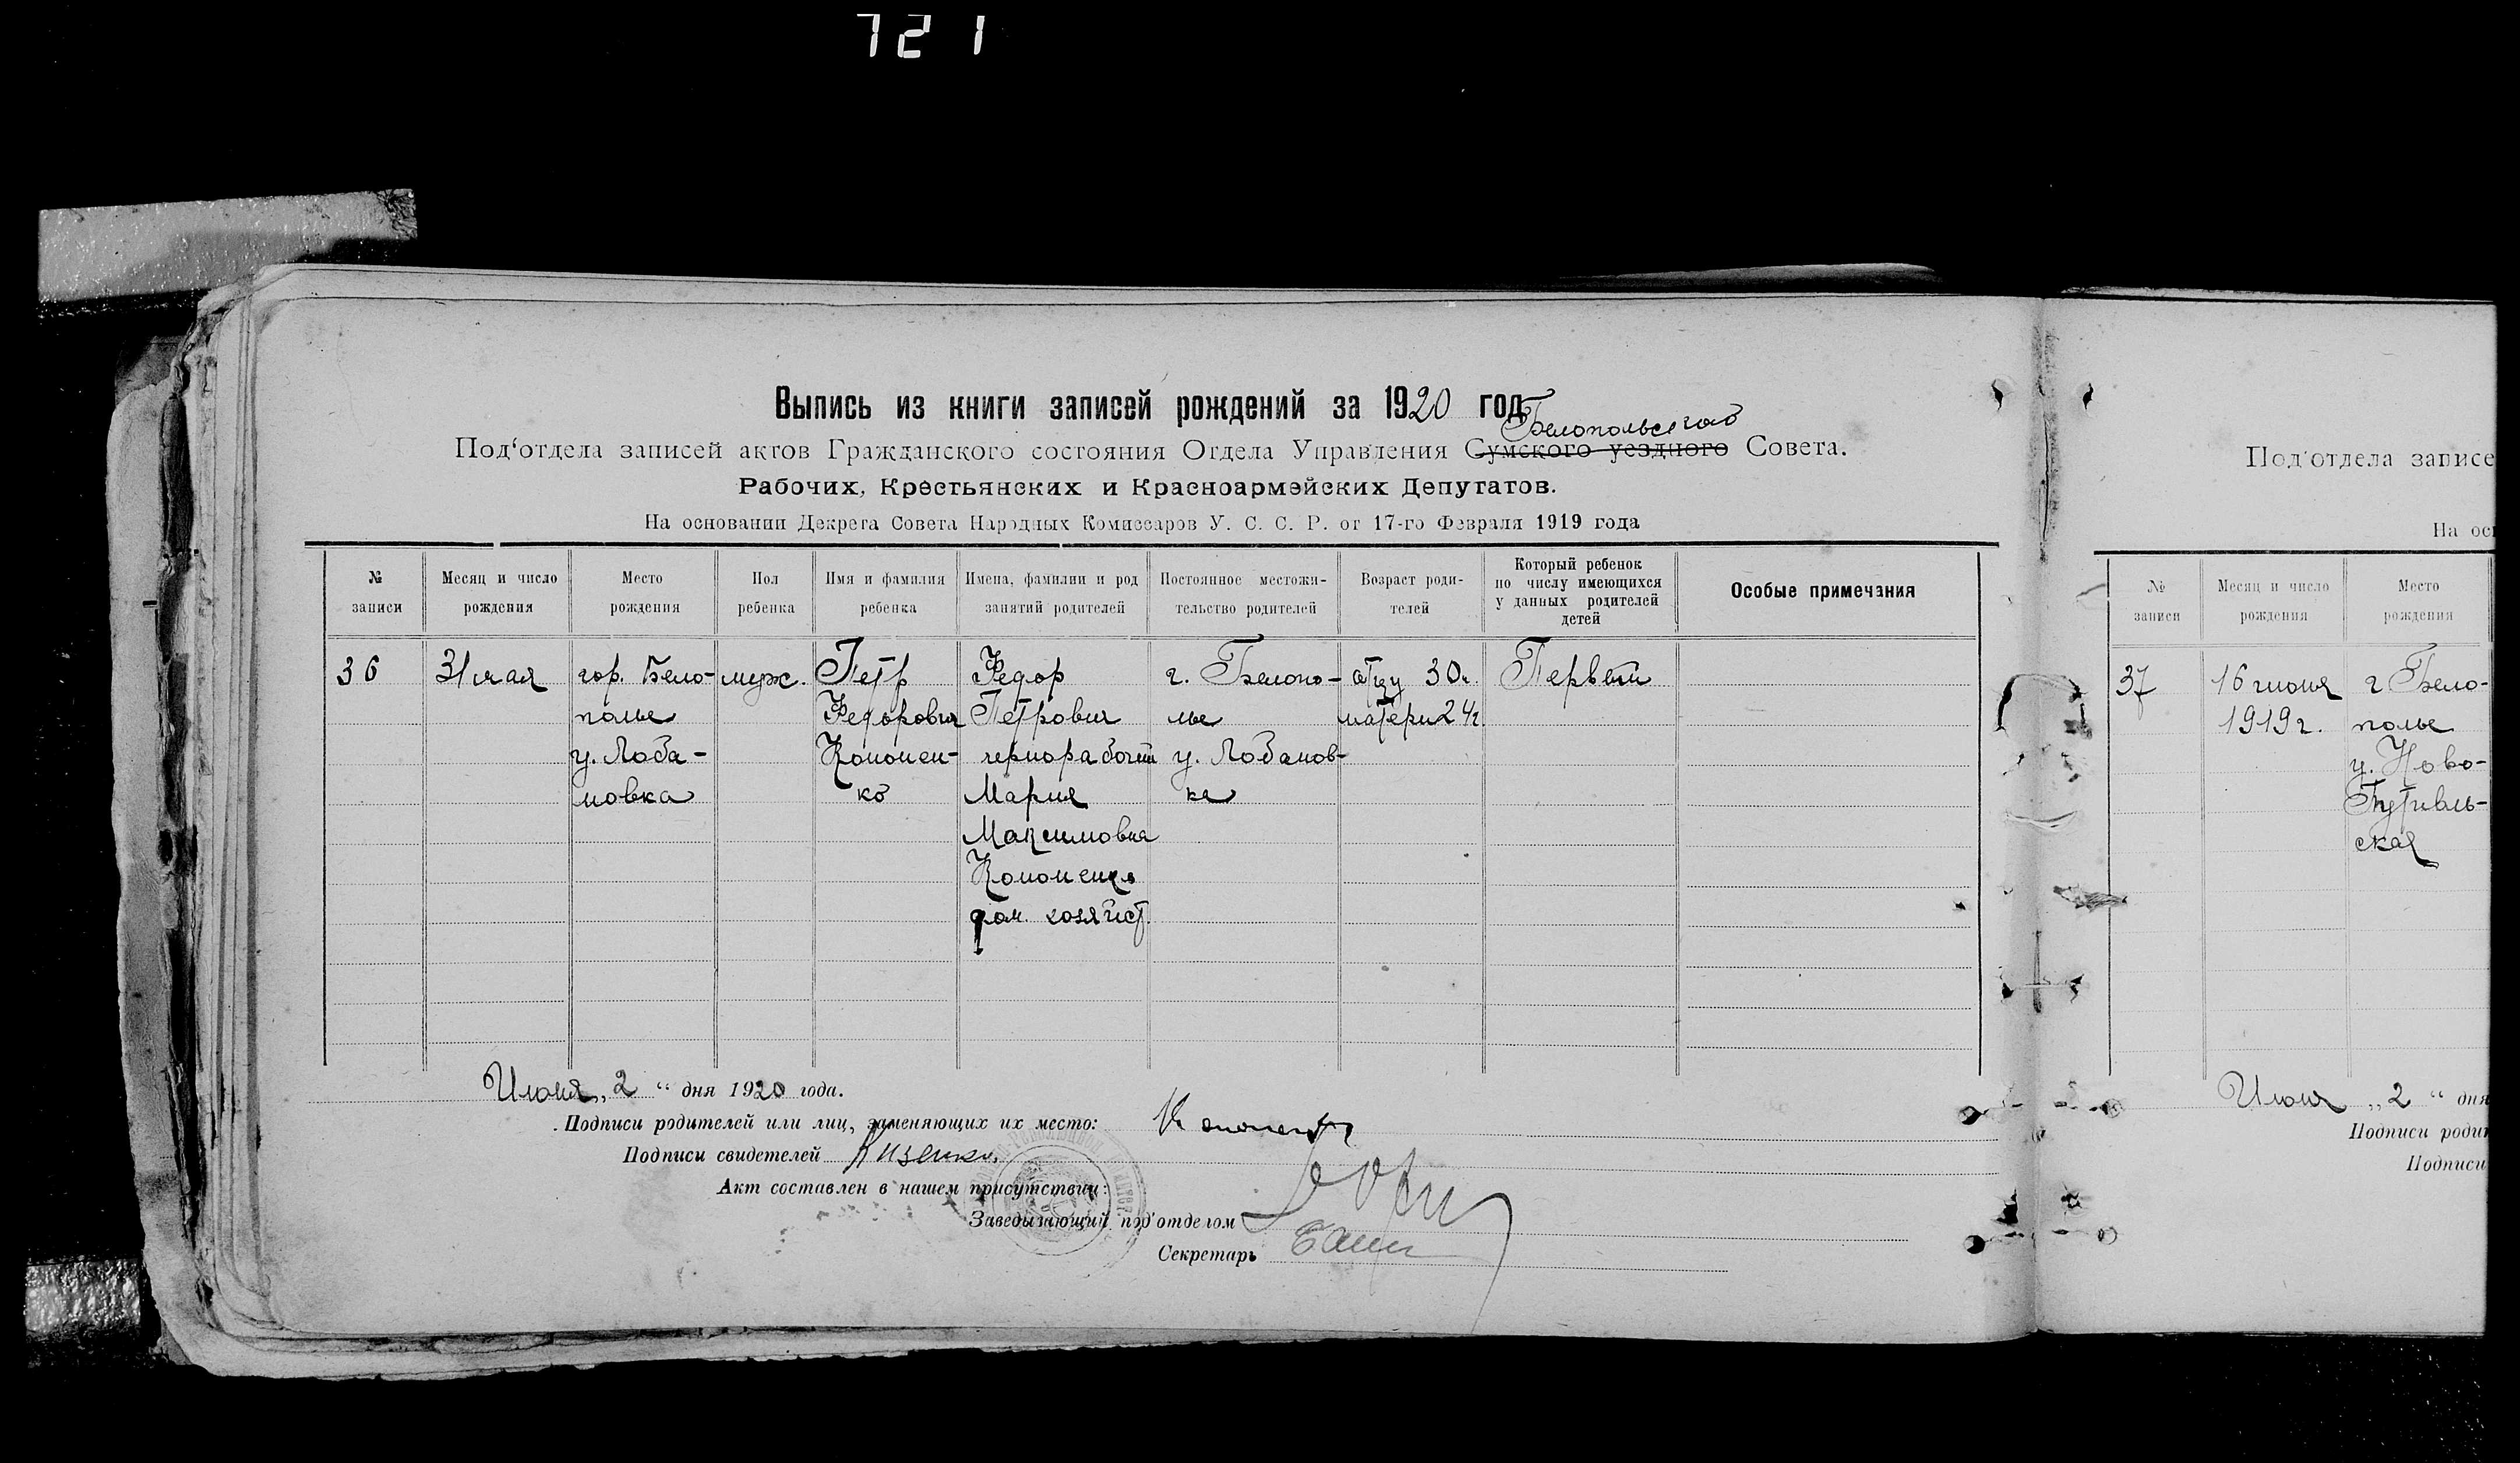 721
Выпись из книги записей рождений за 1920 год
Белопольского
Под'отдела записей актов Гражданского состояния Отдела Управления Сумского уездного Совета.
Рабочих, Крестьянских и Красноармейских Депутатов.
На основании Декрета Совета Народных Комиссаров У. С. С. Р. от 17-го Февраля 1919 года
№ записи
Месяц и число рождения
Место рождения
Пол ребенка
Имя и фамилия ребенка
Имена, фамилии и род занятий родителей
Постоянное местожи-
тельство родителей
Возраст роди-
телей
Который ребенок
по числу имеющихся
у данных родителей
детей
Особые примечания
36
31 мая
гор. Бело-
полье
у. Лоба-
новка
муж.
Петр
Федорович
Кононен-
ко
Федор
Петрович
чернорабочий
Мария
Максимовна
Кононенко
дом. хозяйст.
г. Белопо-
лье
у. Лобанов-
ка
отцу 30 г.
матери 24 г.
Первый
Июня „ 2 “ дня 1920 года.
Подписи родителей или лиц, заменяющих их место: Кононенко
Подписи свидетелей
Акт составлен в нашем присутствии:
Заведывающий под'отделом
Секретарь
Под'отдела записе
На ос
№ записи
Месяц и число рождения
Место рождения
37
16 июня
1919 г.
г Бело-
полье
у. Ново-
Путивль-
ская
Июня „ 2 “ дня
Подписи роди
Подписи